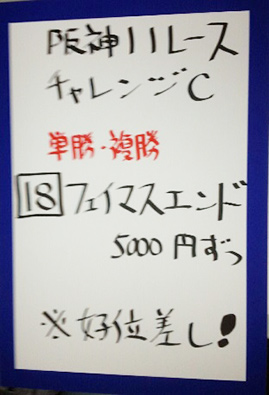 阪神11レース
チャレンジC
単勝・複勝
18 フェイマスエンド
5000円ずつ
※好位差し!